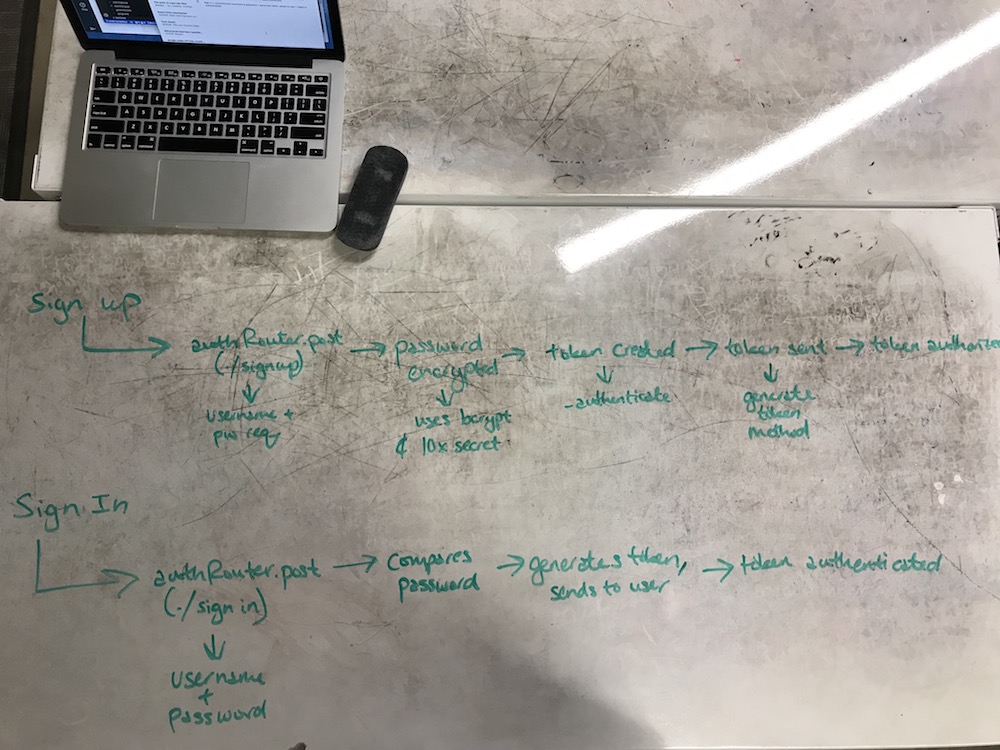 Sign up
authRouter.post
(./signup)
username +
pw req
→ password
encrypted
uses bcrypt
¢ 10x secret
→ token created
- authenticate
→ token sent
generate
token
method
→ token authorized
Sign In
authRouter.post
(./sign in)
username
+
password
→ compares
password
→ generates token,
sends to user
→ token authenticated